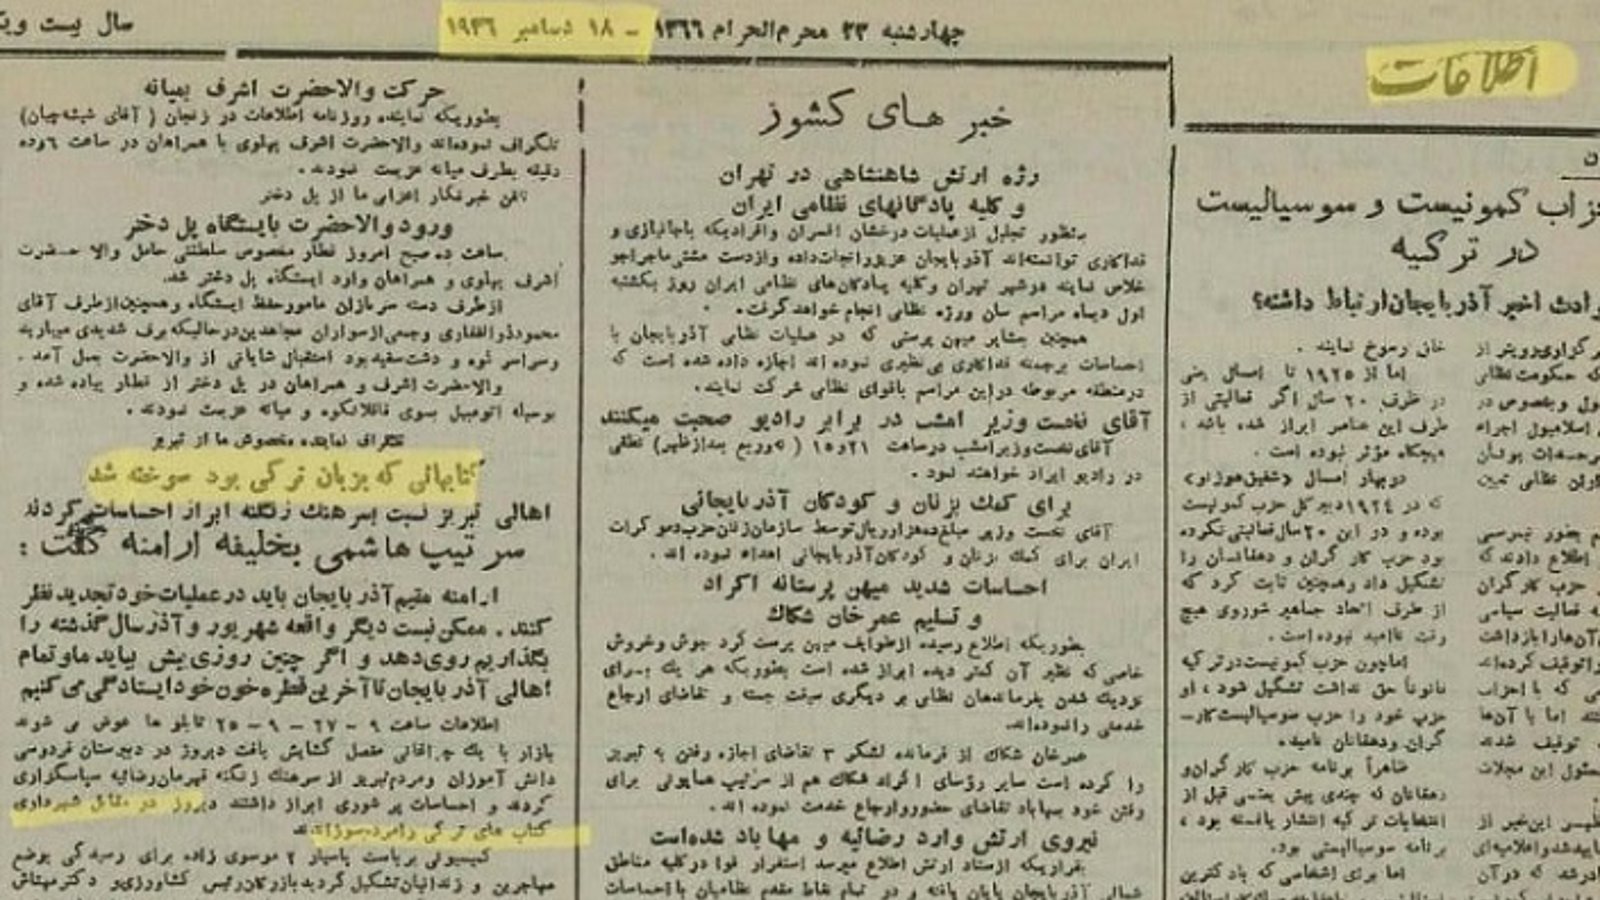 چهارشنبه ۲۳ محرم‌الحرام ۱۳۶۶ - ۱۸ دسامبر ۱۹۴۶
سال بیست و
اطلاعات
ن
حزاب کمونیست و سوسیالیست
در ترکیه
وادث اخیر آذربایجان ارتباط داشته؟
خاق رسوخ نمایند .
اما از ۱۹۲۵ تا امسال یعنی
در ظرف ۲۰ سال اگر فعالیتی از
طرف این عناصر ابراز شده باشد ،
هیچگاه مؤثر نبوده است .
در بهار امسال «شفیق هوزنو»
که در ۱۹۲۴ دبیر کل حزب کمونیست
بوده و در این ۲۰ سال فعالیتی نکرده
بود حزب کارگران و دهقانان را
تشکیل داد و همچنین ثابت کرد که
از طرف اتحاد جماهیر شوروی هیچ
وقت ناامید نبوده است .
اما چون حزب کمونیست در ترکیه
قانوناً حق نداشت تشکیل شود ، او
حزب خود را حزب سوسیالیست کار-
گران و دهقانان نامید.
ظاهراً برنامه حزب کارگران و
دهقانان که چندی پیش یعنی قبل از
انتخابات ترکیه انتشار یافته بود ،
برنامه سوسیالیستی بود.
اما برای اشخاصی که یاد کترین
خبر های کشور
رژه ارتش شاهنشاهی در تهران
و کلیه پادگانهای نظامی ایران
بمنظور تجلیل از عملیات درخشان افسران و افرادیکه با جانبازی و
فداکاری توانسته‌اند آذربایجان عزیز را نجات داده و از دست مشتی ماجراجو
خلاص نمایند در شهر تهران و کلیه پادگان‌های نظامی ایران روز یکشنبه
اول دیماه مراسم سان و رژه نظامی انجام خواهد گرفت .
همچنین عشایر میهن پرستی که در عملیات نظامی آذربایجان با
احساسات برجسته فداکاری بی‌نظیری نموده اند اجازه داده شده است که
در منطقه مربوطه در این مراسم با قوای نظامی شرکت نمایند.
آقای نخست وزیر امشب در برابر رادیو صحبت میکنند
آقای نخست وزیر امشب در ساعت ۲۱ و ۱۵ ( نه و ربع بعد از ظهر) نطقی
در رادیو ایراد خواهند نمود .
برای کمک بزنان و کودکان آذربایجانی
آقای نخست وزیر مبلغ ده هزار ریال توسط سازمان زنان حزب دموکرات
ایران برای کمک بزنان و کودکان آذربایجانی اهداء نموده اند .
احساسات شدید میهن پرستانه اکراد
و تسلیم عمرخان شکاک
بطوریکه اطلاع رسیده از طوایف میهن پرست کرد جوش و خروش
خاصی که نظیر آن کمتر دیده ابراز شده است بطوریکه هر یک برای
نزدیک شدن بفرماندهان نظامی بر دیگری سبقت جسته و تقاضای ارجاع
خدمتی را نموده‌اند.
عمرخان شکاک از فرمانده لشکر ۳ تقاضای اجازه رفتن به تبریز
را کرده است سایر رؤسای اکراد شکاک هم از سرتیپ همایونی برای
رفتن خود بمهاباد تقاضای حضور و ارجاع خدمت نموده اند .
نیروی ارتش وارد رضائیه و مهاباد شده است
بقراریکه از ستاد ارتش اطلاع میرسد استقرار قوا در کلیه مناطق
شمالی آذربایجان پایان یافته و در تمام نقاط مقدم نظامیان با احساسات
حرکت والاحضرت اشرف بمیانه
بطوریکه نماینده روزنامه اطلاعات در زنجان ( آقای شیشه‌چیان)
تلگراف نموده‌اند والاحضرت اشرف پهلوی با همراهان در ساعت ۶ و ده
دقیقه بطرف میانه عزیمت نمودند .
تلفن خبرنگار اعزامی ما از پل دختر
ورود والاحضرت بایستگاه پل دختر
ساعت ده صبح امروز قطار مخصوص سلطنتی حامل والا حضرت
اشرف پهلوی و همراهان وارد ایستگاه پل دختر شد.
از طرف دسته سربازان مامور حفظ ایستگاه و همچنین از طرف آقای
محمود ذوالفقاری و جمعی از سواران مجاهدین در حالیکه برف شدیدی میبارید
و سراسر کوه و دشت سفید بود استقبال شایانی از والاحضرت بعمل آمد .
والاحضرت اشرف و همراهان در پل دختر از قطار پیاده شده و
بوسیله اتومبیل بسوی قافلانکوه و میانه عزیمت نمودند .
تلگراف نماینده مخصوص ما از تبریز
کتابهائی که بزبان ترکی بود سوخته شد
اهالی تبریز نسبت بسرهنک زنگنه ابراز احساسات کردند
سرتیپ هاشمی بخلیفه ارامنه گفت :
ارامنه مقیم آذربایجان باید در عملیات خود تجدید نظر
کنند . ممکن نیست دیگر واقعه شهریور و آذر سال گذشته را
بگذاریم روی دهد و اگر چنین روزی پیش بیاید ما و تمام
اهالی آذربایجان تا آخرین قطره خون خود ایستادگی می کنیم
اطلاعات ساعت ۹ - ۲۷ - ۹ - ۲۵ تابلو ها عوض می شوند
بازار با یک چراغانی مفصل گشایش یافت دیروز در دبیرستان فردوسی
دانش آموزان و مردم تبریز از سرهنک زنگنه قهرمان رضائیه سپاسگزاری
کردند و احساسات پر شوری ابراز داشتند دیروز در مقابل شهرداری
کتاب های ترکی را مردم سوزاندند
کمیسیونی بریاست پاسیار ۲ موسوی زاده برای رسیدگی بوضع
مهاجرین و زندانیان تشکیل گردید بازرگان رئیس کشاورزی و دکتر مهتاش